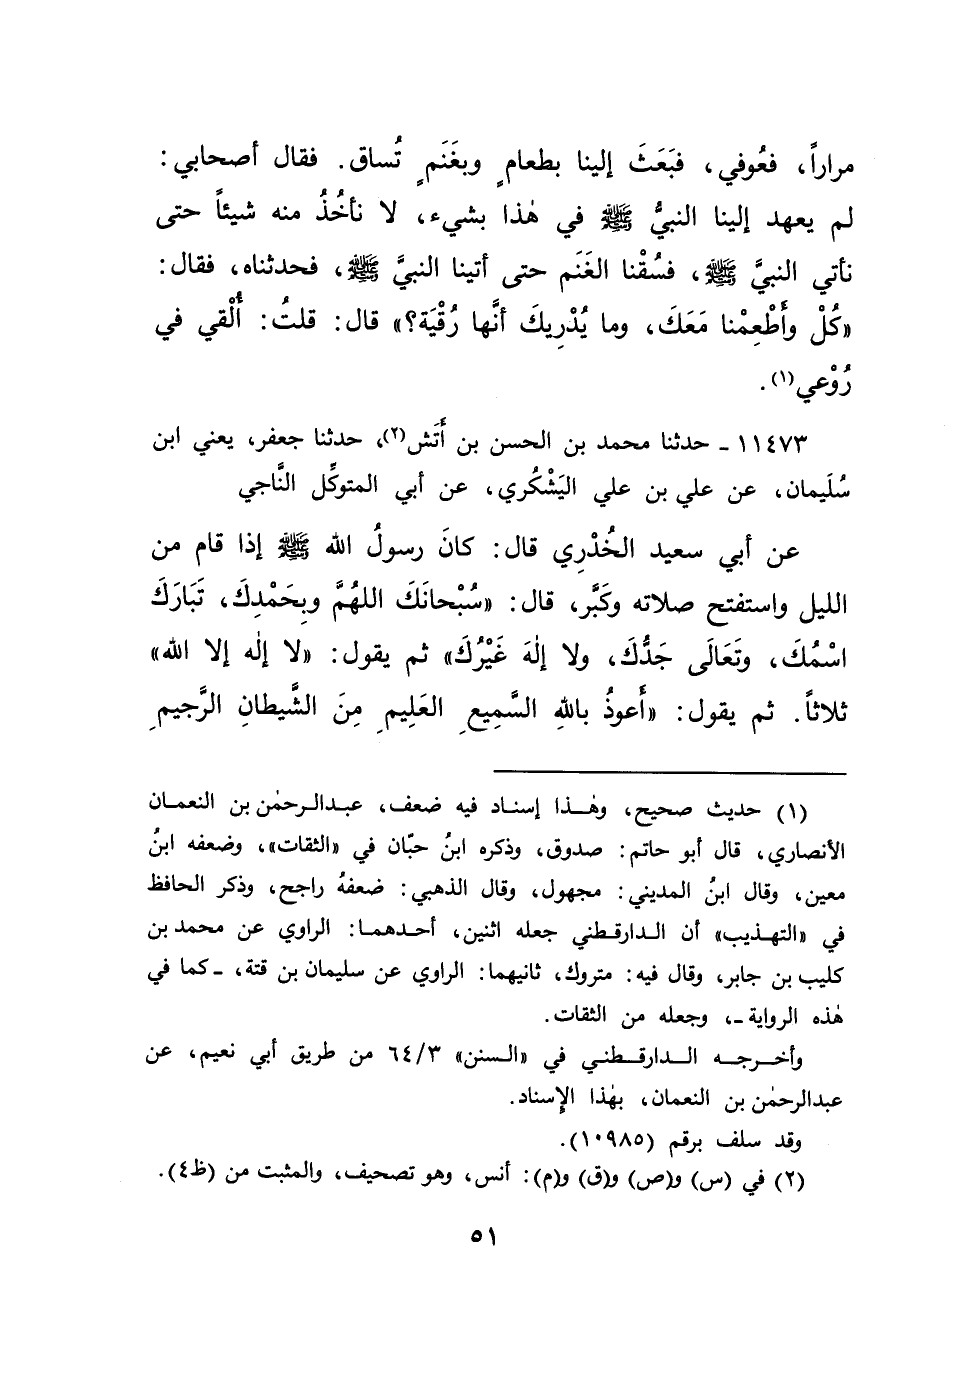 مراراً، فعُوفي، فبَعَثَ إلينا بطعامٍ وبغَنَمٍ تُساق. فقال أصحابي:
لم يعهد إلينا النبيُّ ﷺ في هٰذا بشيء، لا نأخُذُ منه شيئاً حتى
نأتي النبيَّ ﷺ، فسُقْنا الغَنَم حتى أتينا النبيَّ ﷺ، فحدثناه، فقال:
«كُلْ وأَطْعِمْنا مَعَكَ، وما يُدْرِيكَ أنَّها رُقْيَة؟» قال: قلتُ: أُلْقي في
رُوْعي(١).
١١٤٧٣ ـ حدثنا محمد بن الحسن بن أَتَش(٢)، حدثنا جعفر، يعني ابن
سُلَيمان، عن علي بن علي اليَشْكُري، عن أبي المتوكِّل النَّاجي
عن أبي سعيد الخُدْرِي قال: كانَ رسولُ الله ﷺ إذا قام من
الليل واستفتح صلاته وكَبَّر، قال: «سُبْحانَكَ اللهُمَّ وبِحَمْدِكَ، تَبَارَكَ
اسْمُكَ، وتَعَالَى جَدُّكَ، ولا إلٰهَ غَيْرُكَ» ثم يقول: «لا إلٰه إلا الله»
ثلاثاً. ثم يقول: «أَعوذُ باللهِ السَّمِيعِ العَلِيمِ مِنَ الشَّيطانِ الرَّجيمِ
(١) حديث صحيح، وهٰذا إسناد فيه ضعف، عبدالرحمٰن بن النعمان
الأنصاري، قال أبو حاتم: صدوق، وذكره ابنُ حبّان في «الثقات»، وضعفه ابنُ
معين، وقال ابنُ المديني: مجهول، وقال الذهبي: ضعفهُ راجح، وذكر الحافظ
في «التهذيب» أن الدارقطني جعله اثنين، أحدهما: الراوي عن محمد بن
كليب بن جابر، وقال فيه: متروك، ثانيهما: الراوي عن سليمان بن قتة، ـ كما في
هٰذه الرواية ـ، وجعله من الثقات.
وأخرجه الدارقطني في «السنن» ٦٤/٣ من طريق أبي نعيم، عن
عبدالرحمٰن بن النعمان، بهٰذا الإسناد.
وقد سلف برقم (١٠٩٨٥).
(٢) في (س) و(ص) و(ق) و(م): أنس، وهو تصحيف، والمثبت من (ظ٤).
٥١